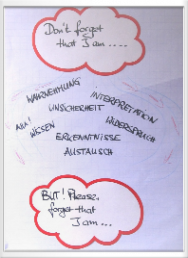 Don't forget
that I am ....
WAHRNEHMUNG
INTERPRETATION
UNSICHERHEIT
AHA!
WISSEN
WIDERSPRUCH
ERKENNTNISSE
AUSTAUSCH
BUT! Please,
forget that
I am ...